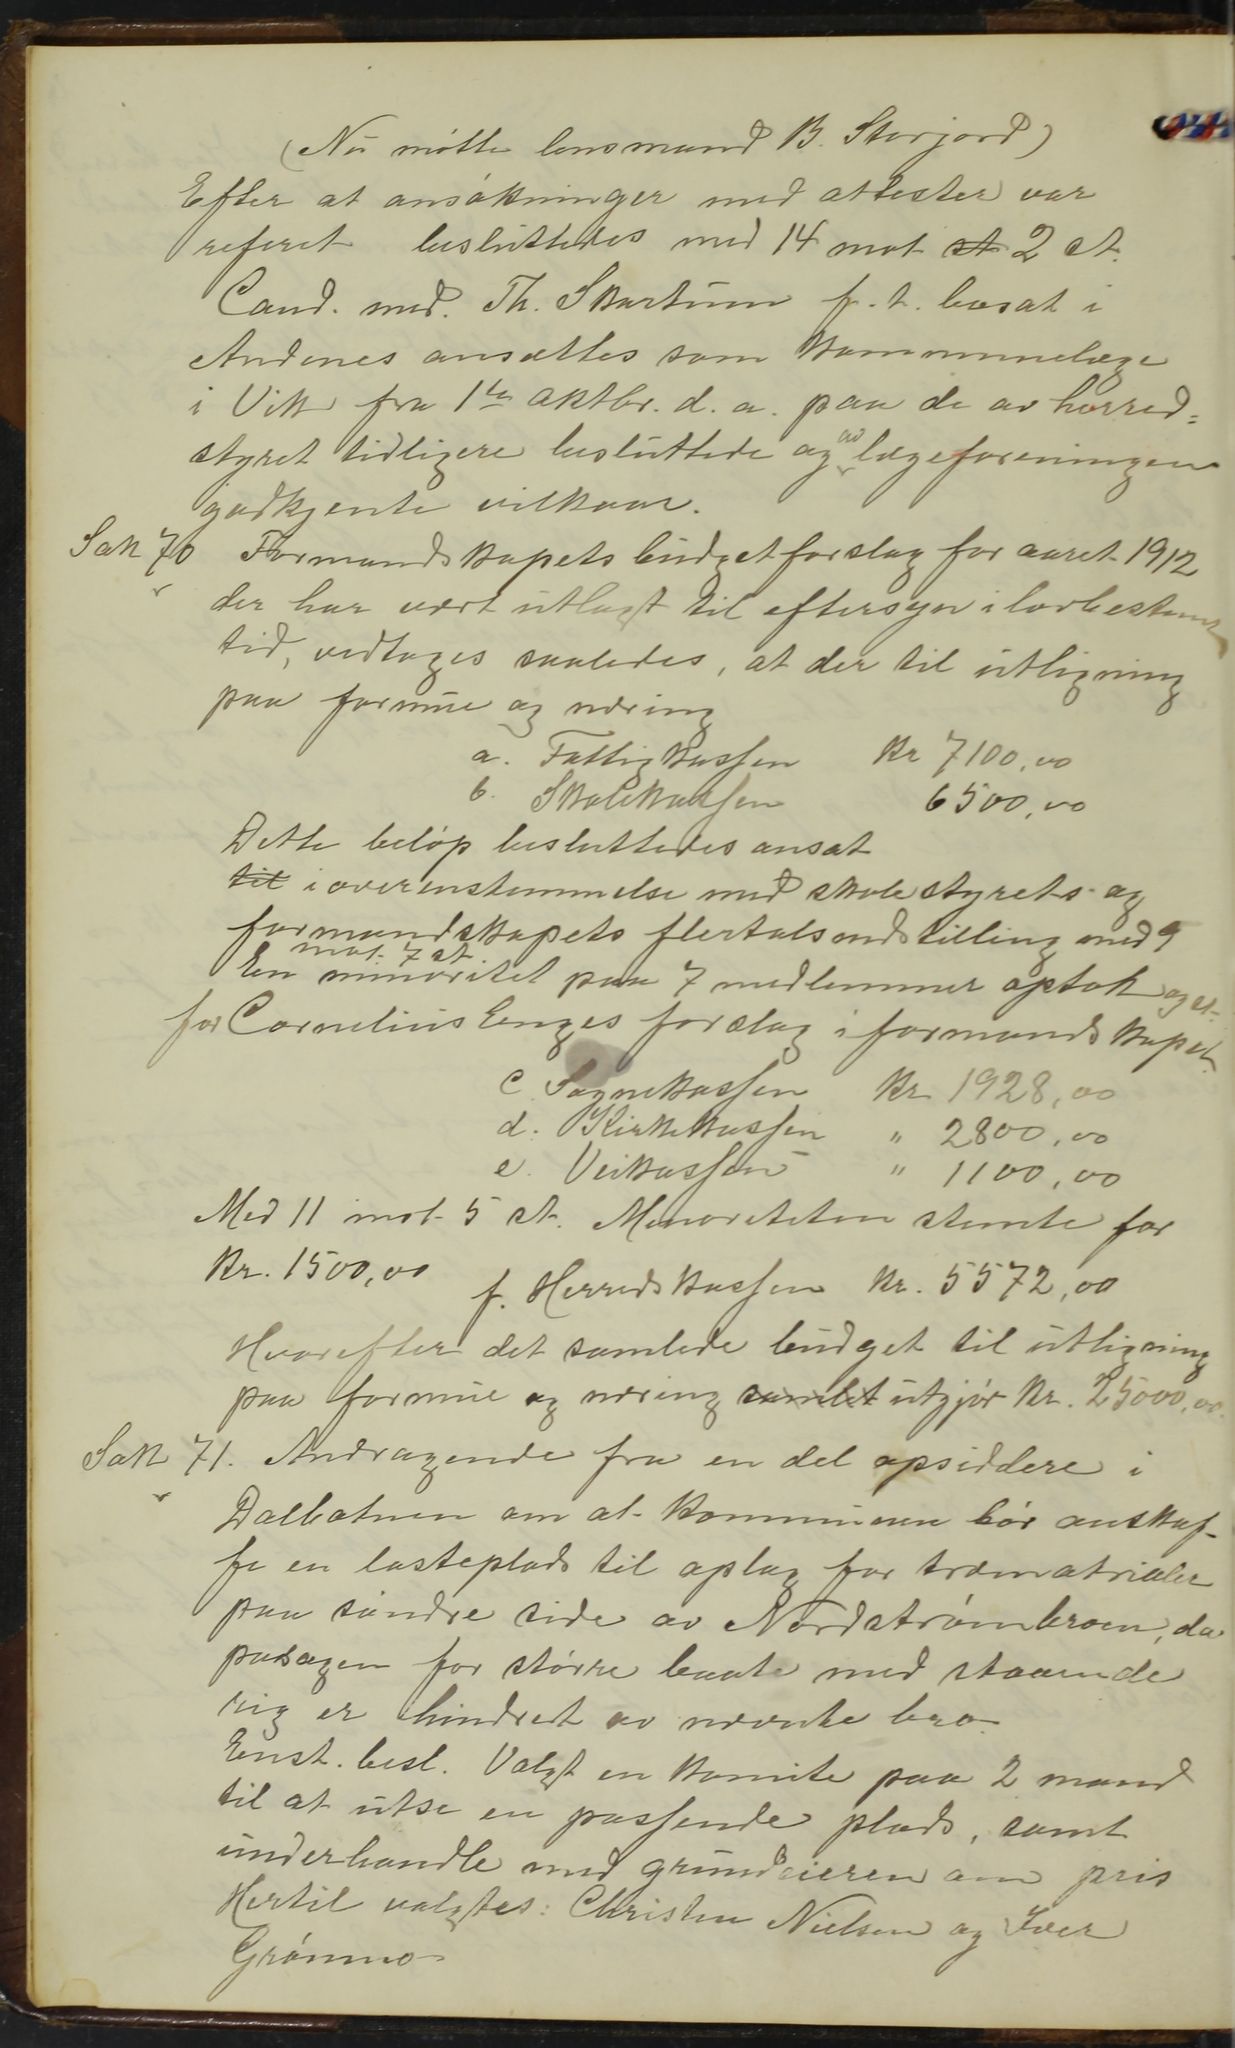 (Nu møtte lensmand B. Storjord)
Efter at ansøkninger med attester var
referet besluttedes med 14 mot st 2 st.
Cand. med. Th. Skartum f. t. bosat i
Andenes ansættes som kommunelæge
i Vik fra 1ste oktbr. d. a. paa de av herred=
styret tidligere besluttede og av lægeforeningen
godkjente vilkaar.
Sak 70 Formandskapets budgetforslag for aaret 1912
der har vært utlagt til eftersyn i lovbestemt
tid, vedtages saaledes, at der til utligning
paa formue og næring
a. Fattigkassen Kr 7100,00
b. Skolekassen 6500,00
Dette beløp besluttedes ansat
til i overenstemmelse med skolestyrets og
formandskapets flertalsindstilling med 9
mot 7 st.
En minoritet paa 7 medlemmer optok og st.
for Cornelius Enges forslag i formandskapet.
c. Sognekassen Kr 1928,00
d. Kirkekassen " 2800,00
e. Veikassen " 1100,00
Med 11 mot 5 st. Minoriteten stemte for
Kr. 1500,00
f. Herredskassen Kr. 5572,00
Hvorefter det samlede budget til utligning
paa formue og næring samlet utgjør Kr. 25000,00.
Sak 71. Andragende fra en del opsiddere i
Dalbotnen om at kommunen bør anskaf-
fe en lasteplads til oplag for træmatrialer
paa søndre side av Nordstrømbroen, da
pasagen for større baate med staaende
rig er hindret av nævnte bro.
Enst. besl. Valgt en komite paa 2 mand
til at utse en passende plads, samt
underhandle med grundeieren om pris
Hertil valgtes: Christen Nielsen og Iver
Grønmo